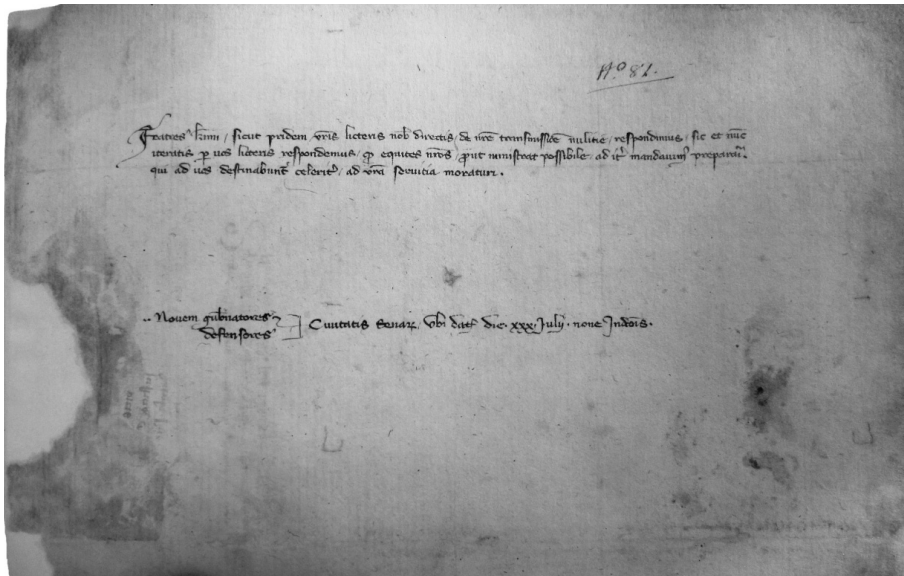 Nº 81.
Fratres kr̄mi, sicut pridem vr̄is licteris nob̄ directis, de nr̄e transmissiōe militie, respondimus, sic et nūc
iteratis p vos licteris respondemus, ꝙ equites nr̄os, prout possibile, ad iter mandavimꝰ preparari.
qui ad vos destinabunt̃ celerit̃, ad vr̄a servitia moraturi.
.. Novem gub̄natores ⁊
defensores
Civitatis Senaꝝ, Ubi dat̃ die. xxx. Julij. none Indōis.